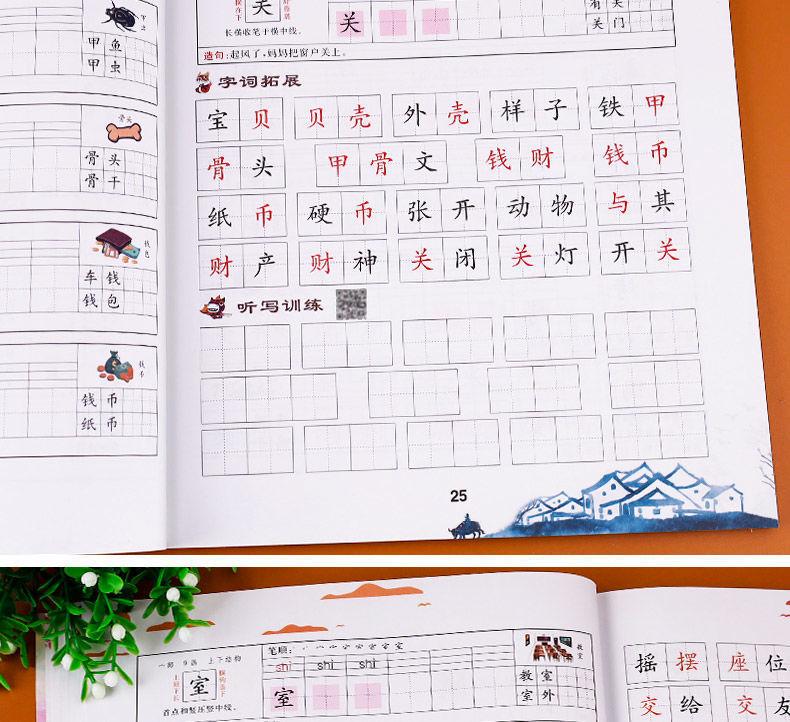 甲虫
甲鱼
甲虫
骨头
骨头
骨干
钱包
车钱
钱包
钱币
钱币
纸币
关
关
长横收笔于横中线。
关门
造句：起风了，妈妈把窗户关上。
字词拓展
宝贝 贝壳 外壳 样子 铁甲
骨头 甲骨文 钱财 钱币
纸币 硬币 张开 动物 与其
财产 财神 关闭 关灯 开关
听写训练
25
宀部 9画 上下结构
室
首点和竖压竖中线。
笔顺：
shì shì shì
室
教室
教室
室外
摇摆 座位
交给 交友